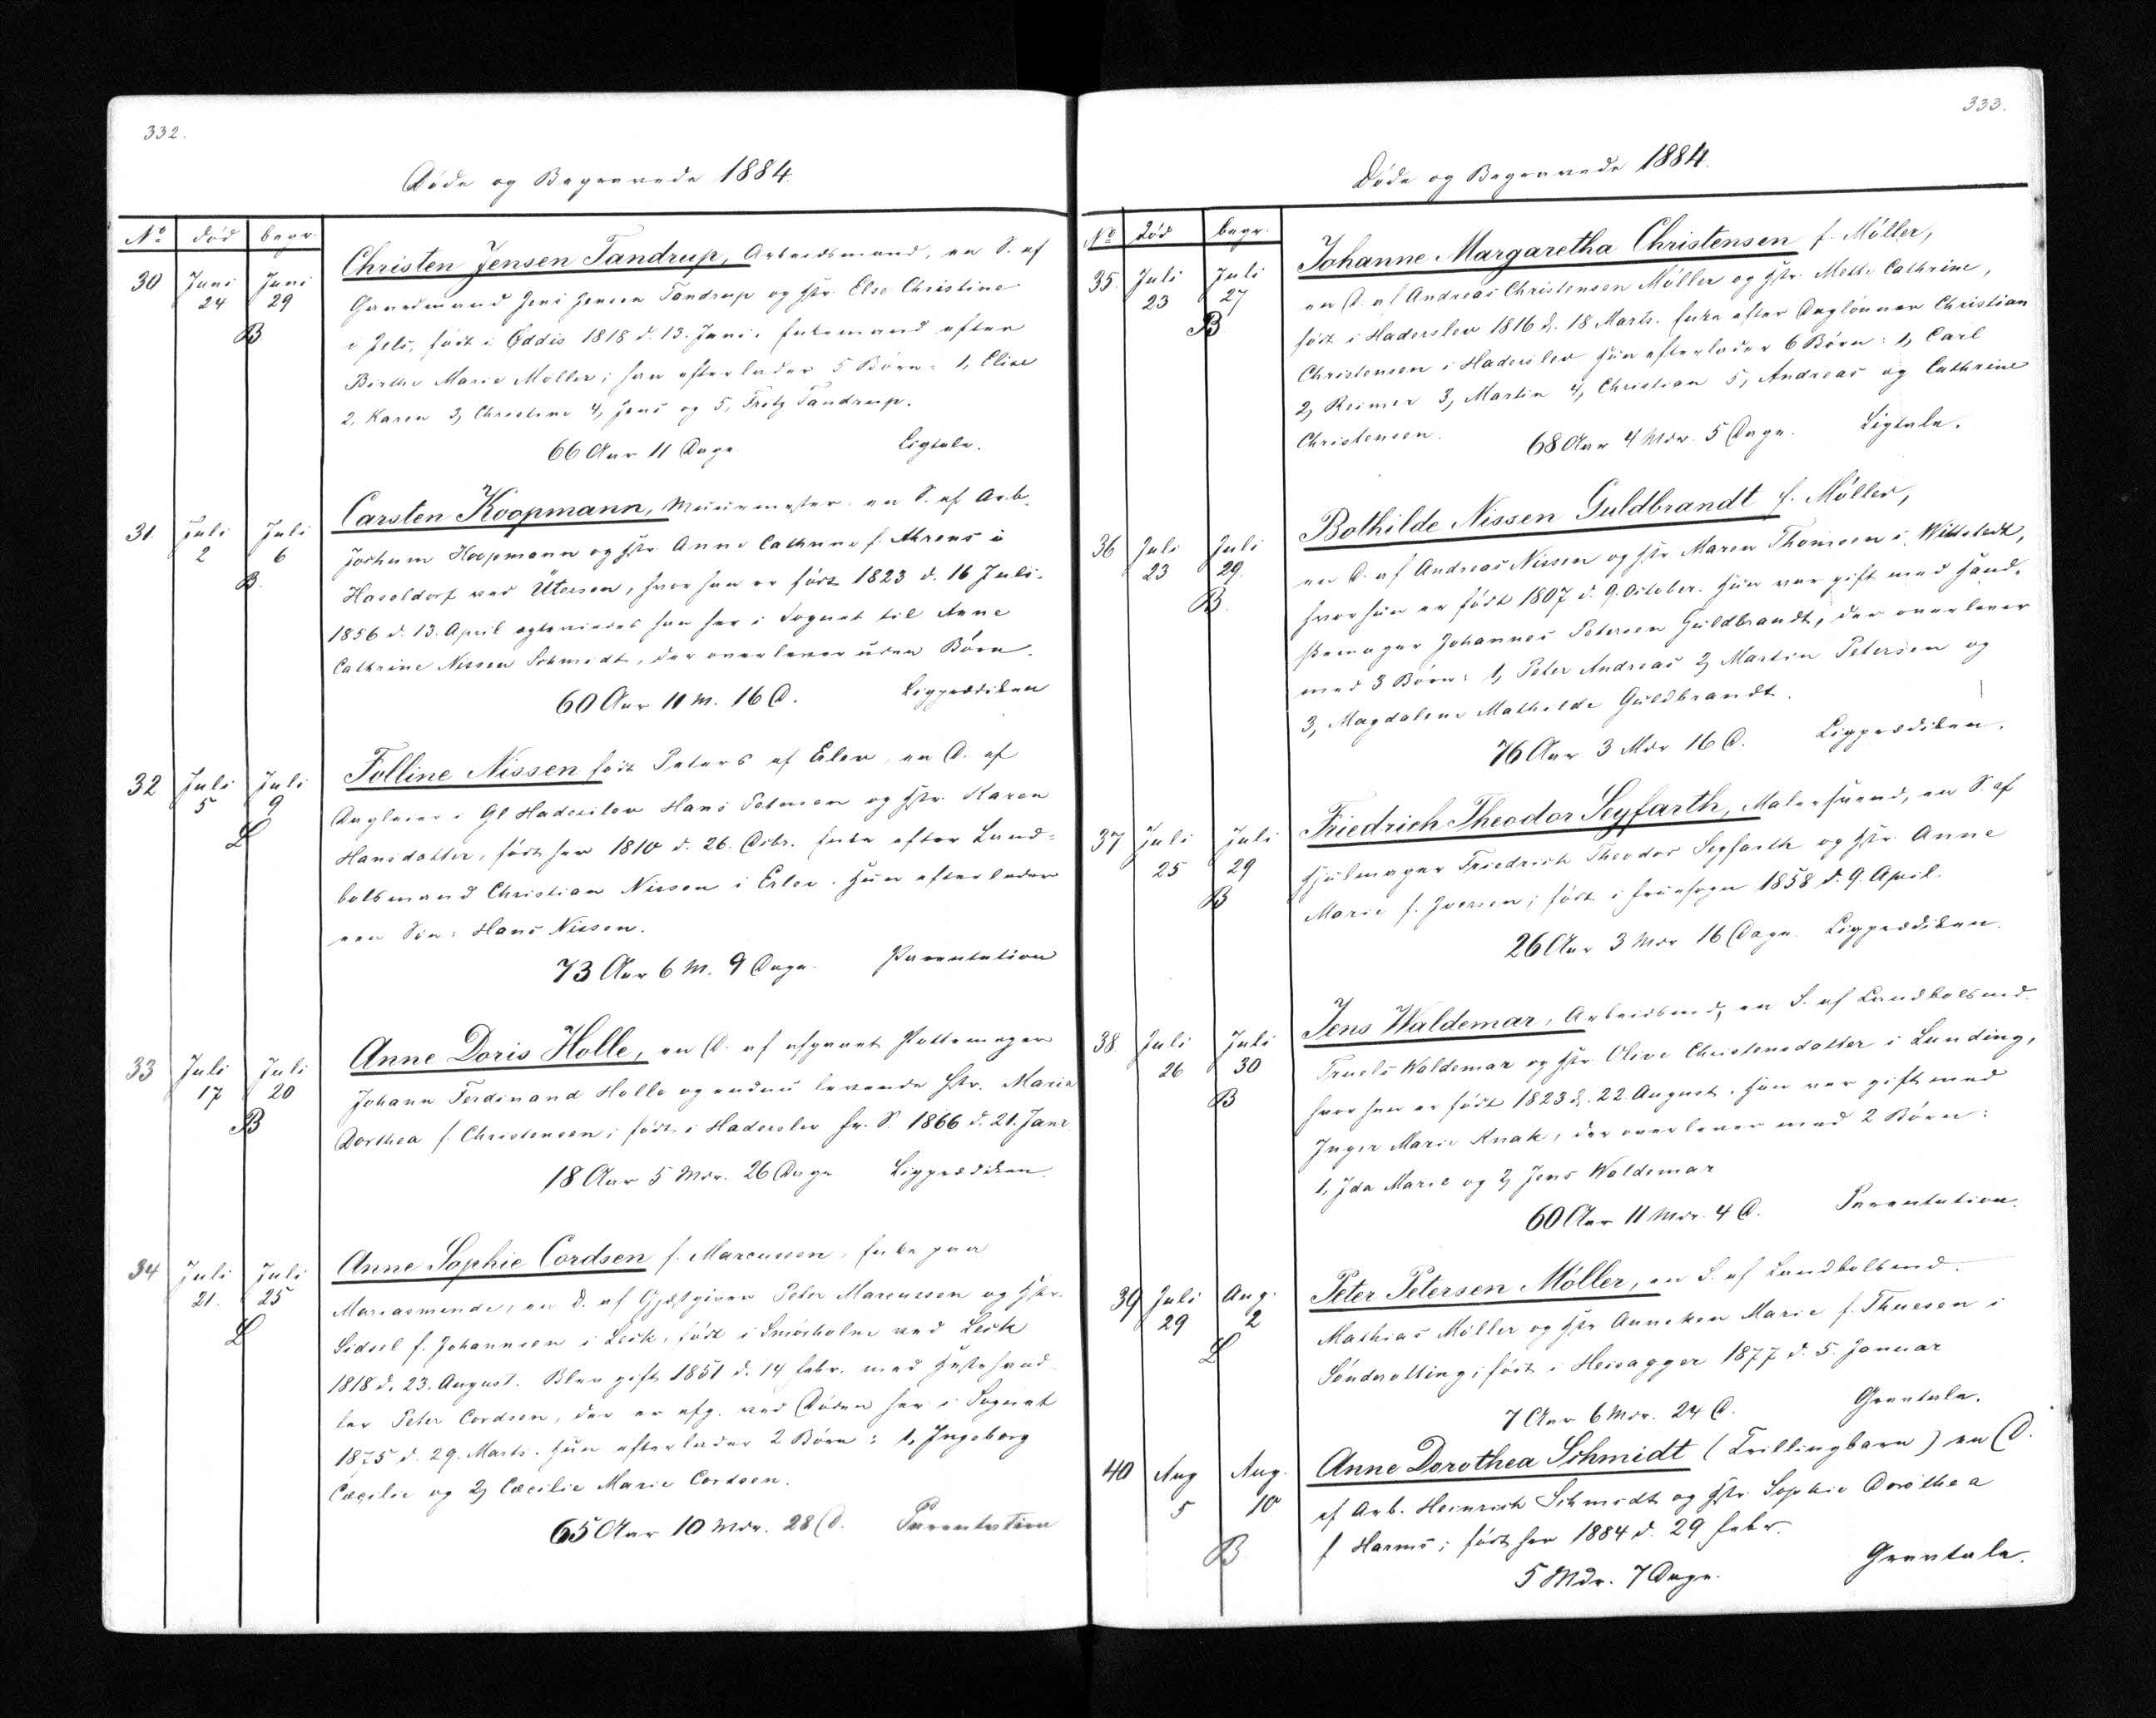 332.
Døde og Begravede 1884.
No død begr.
30 Juni 24 Juni 29 B
Christen Jensen Tandrup, Arbeidsmand, en S. af
Gaardmand Jens Jensen Tandrup og Hstr. Else Christine
i Jels, født i Øddis 1818 d. 13. Juni. Enkemand efter
Birthe Marie Möller; han efterlader 5 Børn: 1, Elise
2, Karen 3, Christine 4, Jens og 5, Fritz Tandrup.
66 Aar 11 Dage Ligtale.
31. Juli 2 Juli 6 B.
Carsten Koopmann, Muurmester, en S. af Arb.
Jochum Koopmann og Hstr. Anne Cathrine f. Ahrens i
Haseldorf ved Ütersen, hvor han er født 1823 d. 16 Juli.
1856 d. 13. April ægteviedes han her i Sognet til Anne
Cathrine Nissen Schmidt, der overlever uden Børn.
60 Aar 11 M. 16 D. Ligprædiken
32 Juli 5 Juli 9 L
Folline Nissen født Peters af Erlev, en D. af
Dagleier i Gl Haderslev Hans Petersen og Hstr. Karen
Hansdatter, født her 1810 d. 26. Dcbr. Enke efter Land-
bolsmand Christian Nissen i Erlev. Hun efterlader
een Søn: Hans Nissen.
73 Aar 6 M. 9 Dage. Parentation
33 Juli 17 Juli 20 B
Anne Doris Holle, en D. af afgaaet Pottemager
Johann Ferdinand Holle og endnu levende Hstr. Marie
Dorthea f. Christensen; født i Haderslev Fr. S. 1866 d. 21. Janr
18 Aar 5 Mdr. 26 Dage Ligprædiken.
34 Juli 21. Juli 25 L
Anne Sophie Cordsen f. Marcussen, Enke paa
Mariasminde, en D. af Gjæstgiver Peter Marcussen og Hstr.
Sidsel f. Johannsen i Leck, født i Smörholm ved Leck
1818 d. 23. August. Blev gift 1851 d. 14 Febr. med Hestehand-
ler Peter Cordsen, der er afg. ved Døden her i Sognet
1875 d. 29. Marts. Hun efterlader 2 Børn: 1, Ingeborg
Cæcilie og 2, Cæcilie Marie Cordsen.
65 Aar 10 Mdr. 28 D. Parentation
333.
Døde og Begravede 1884.
No død begr.
35. Juli 23 Juli 27 B
Johanne Margaretha Christensen f. Möller,
en D. af Andreas Christensen Möller og Hstr. Mette Cathrine,
født i Haderslev 1816 d. 18 Marts. Enke efter Daglønner Christian
Christensen i Haderslev Hun efterlader 6 Børn: 1, Carl
2, Reimer 3, Martin 4, Christian 5, Andreas og Cathrine
Christensen. 68 Aar 4 Mdr. 5 Dage. Ligtale.
36 Juli 23 Juli 29 B.
Bothilde Nissen Guldbrandt f. Möller,
en D. af Andreas Nissen og Hstr Maren Thomsen i Wittstedt,
hvor hun er født 1807 d. 9. October. Hun var gift med Hand-
skemager Johannes Petersen Guldbrandt, der overlever
med 3 Børn: 1, Peter Andreas 2, Martin Petersen og
3, Magdalene Mathilde Guldbrandt.
76 Aar 3 Mdr 16 D. Ligprædiken.
37 Juli 25 Juli 29 B
Friedrich Theodor Seyfarth, Malersvend, en S. af
Hjulmager Friedrich Theodor Seyfarth og Hstr. Anne
Marie f. Iversen; født i Fruesogn 1858 d. 9. April.
26 Aar 3 Mdr 16 Dage. Ligprædiken.
38 Juli 26 Juli 30 B
Jens Waldemar, Arbeidsmd, en S. af Landbolsmd.
Truels Waldemar og Hstr Olive Christensdatter i Lunding,
hvor han er født 1823 d. 22. August. Han var gift med
Inger Marie Knak, der overlever med 2 Børn:
1, Ida Marie og 2, Jens Waldemar
60 Aar 11 Mdr. 4 D. Parentation.
39 Juli 29 Aug. 2 L
Peter Petersen Möller, en S. af Landbolsmd.
Mathias Möller og Hstr Anneken Marie f. Thuesen i
Sönderotting; født i Heisagger 1877 d. 5. Januar
7 Aar 6 Mdr. 24 D. Gravtale.
40 Aug 5 Aug. 10 B
Anne Dorothea Schmidt (Trillingbarn) en D.
af Arb. Heinrich Schmidt og Hstr Sophie Dorothea
f Harms; født her 1884 d. 29 Febr.
5 Mdr. 7 Dage. Gravtale.